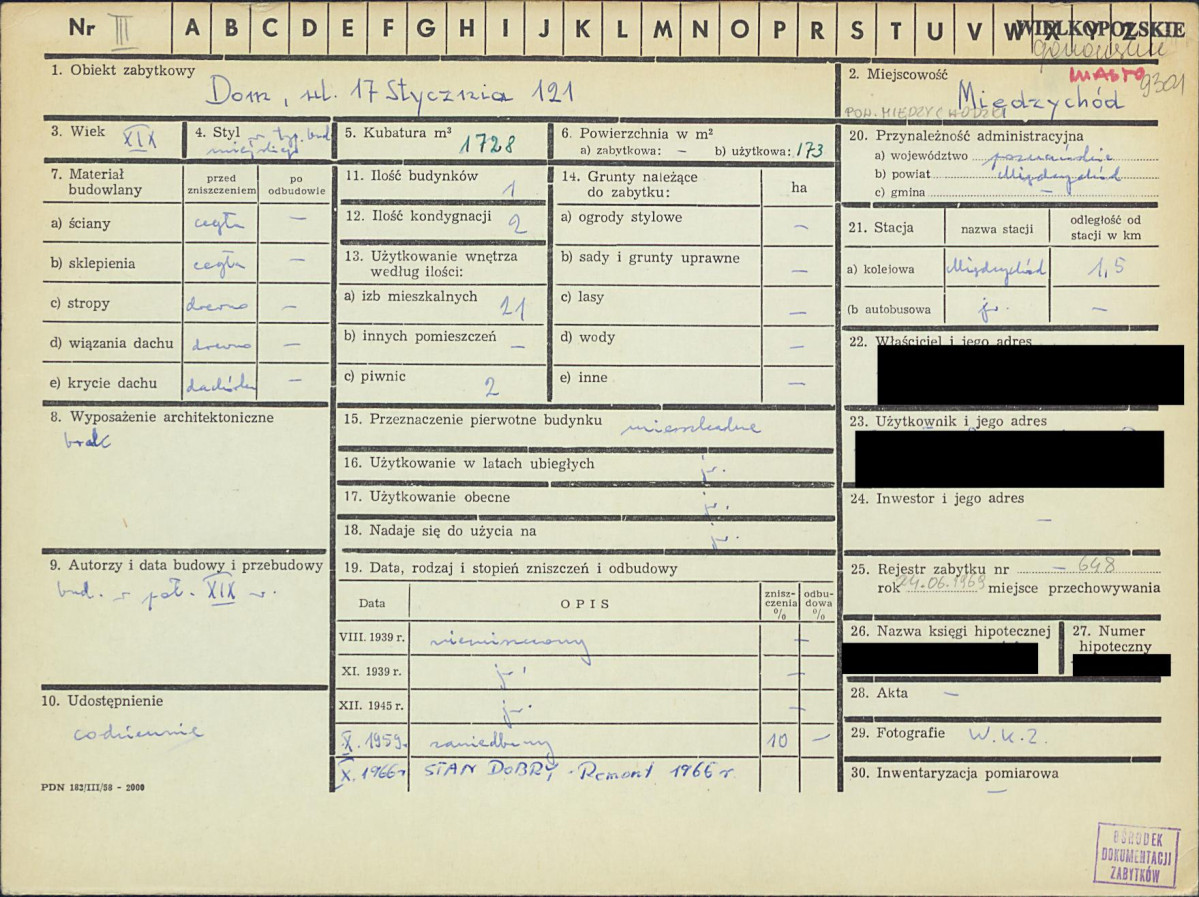 Nr III A B C D E F G H I J K L M N O P R S T U V W X Y Z
WIELKOPOLSKIE
gorzowskie
MIASTO 9301
1. Obiekt zabytkowy
Dom, ul. 17 Stycznia 121
2. Miejscowość
Międzychód
POW. MIĘDZYCHODZKI
3. Wiek XIX
4. Styl w typ. bud. miejskiego
5. Kubatura m³ 1728
6. Powierzchnia w m²
a) zabytkowa: – b) użytkowa: 173
7. Materiał budowlany
przed zniszczeniem
po odbudowie
a) ściany cegła –
b) sklepienia cegła –
c) stropy drewno –
d) wiązania dachu drewno –
e) krycie dachu dachówka –
8. Wyposażenie architektoniczne
brak
9. Autorzy i data budowy i przebudowy
bud. w poł. XIX w.
10. Udostępnienie
codziennie
PDN 182/III/58 - 2000
11. Ilość budynków 1
12. Ilość kondygnacji 2
13. Użytkowanie wnętrza według ilości:
a) izb mieszkalnych 21
b) innych pomieszczeń –
c) piwnic 2
14. Grunty należące do zabytku:
ha
a) ogrody stylowe –
b) sady i grunty uprawne –
c) lasy –
d) wody –
e) inne –
15. Przeznaczenie pierwotne budynku mieszkalne
16. Użytkowanie w latach ubiegłych jw.
17. Użytkowanie obecne jw.
18. Nadaje się do użycia na jw.
19. Data, rodzaj i stopień zniszczeń i odbudowy
Data
OPIS
znisz-
czenia
%
odbu-
dowa
%
VIII. 1939 r. niezniszczony –
XI. 1939 r. jw. –
XII. 1945 r. jw. –
X. 1959. zaniedbany 10 –
X. 1966 r STAN DOBRY - Remont 1966 r.
20. Przynależność administracyjna
a) województwo poznańskie
b) powiat Międzychód
c) gmina –
21. Stacja
nazwa stacji
odległość od stacji w km
a) kolejowa Międzychód 1,5
(b autobusowa jw. –
22. Właściciel i jego adres
23. Użytkownik i jego adres
24. Inwestor i jego adres
–
25. Rejestr zabytku nr – 648
rok 24.06.1969 miejsce przechowywania
26. Nazwa księgi hipotecznej
27. Numer hipoteczny
28. Akta –
29. Fotografie W.K.Z.
30. Inwentaryzacja pomiarowa
–
OŚRODEK
DOKUMENTACJI
ZABYTKÓW